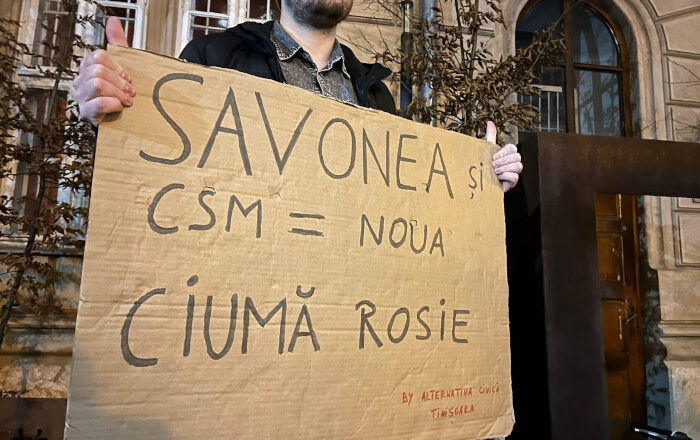 SAVONEA și
CSM = NOUA
CIUMĂ ROSIE
BY ALTERNATIVA CIVICĂ
TIMIȘOARA